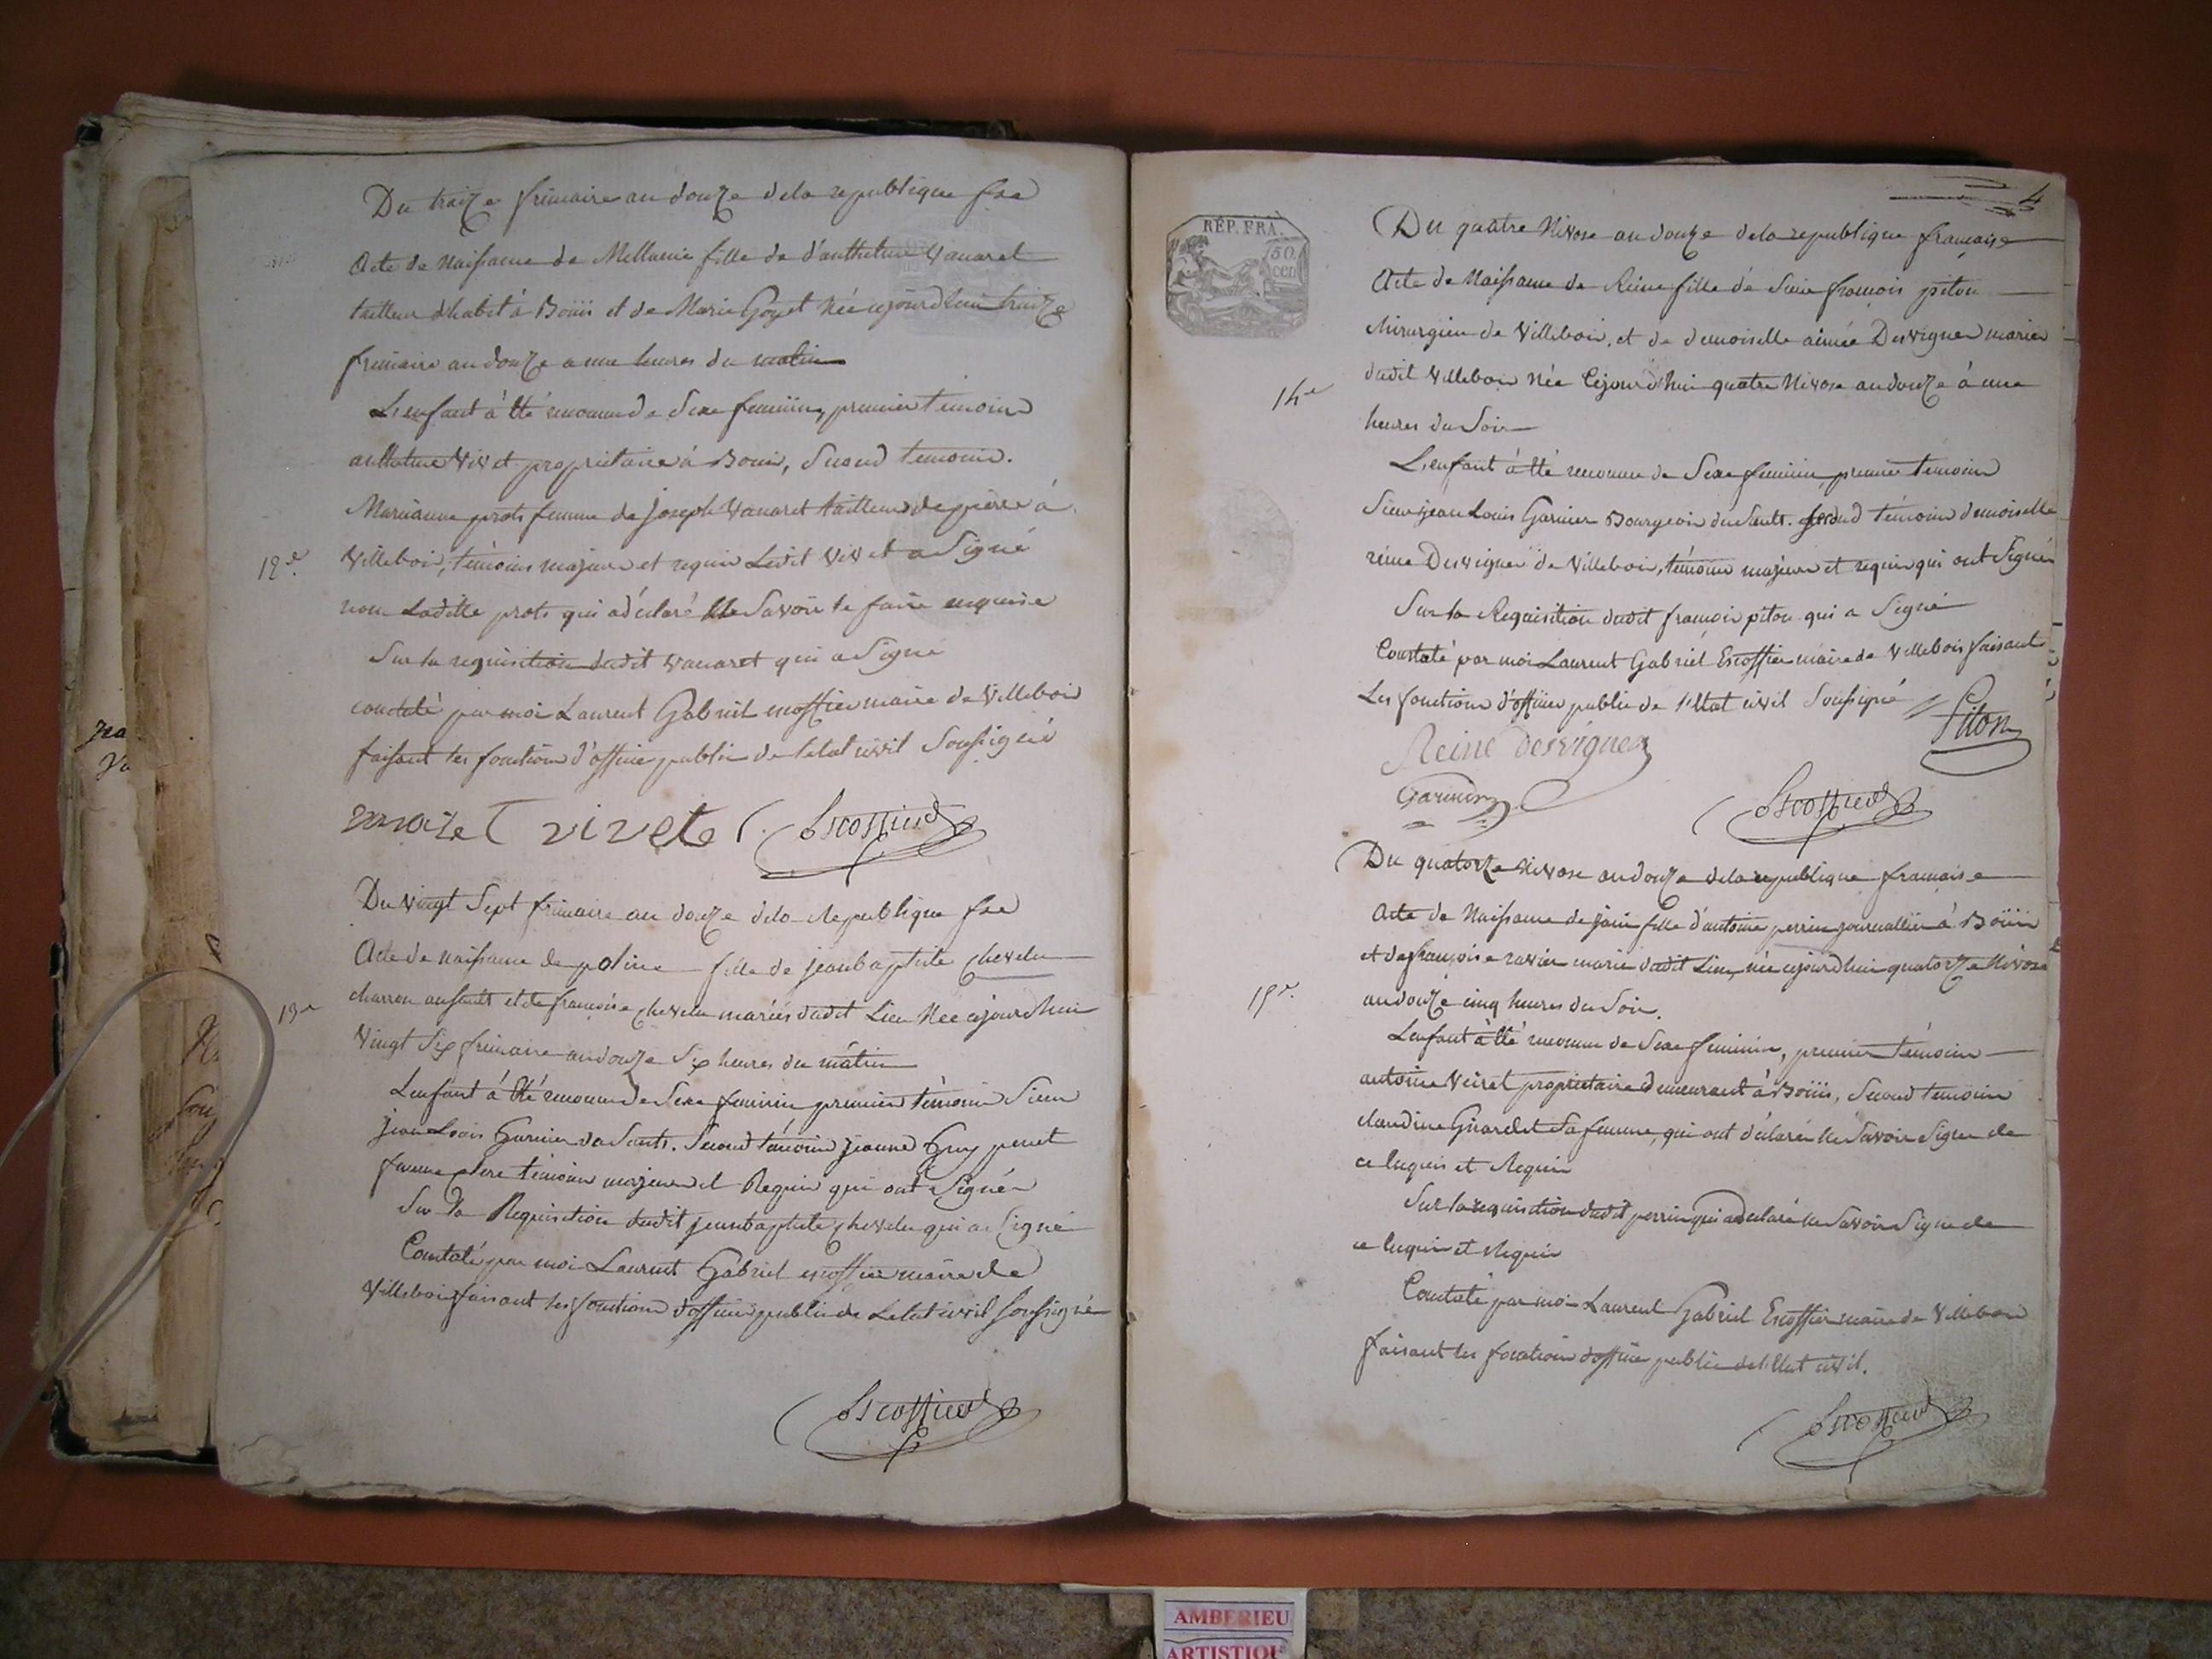 Du traize frimaire an douze de la republique fse
Acte de Naissance de Mellanie fille de d'anthelme Vanaret
tailleur d'habit à Boüis et de Marie Goyet Née cejourdhui traize
frimaire an douze a une heures du matin
L'enfant à été reconnu de Sexe feminin, premier temoins
anthelme Vivet proprietaire à Bouis, Second temoins.
Marianne prots femme de joseph Vanaret tailleur de pierre à
12e. Villebois, témoins majeurs et requis Ledit Vivet a Signé
non Ladite prots qui a déclaré Ne Savoir le faire enquise
Sur la requisition dudit Vanaret qui a Signé
constaté par moi Laurent Gabriel escoffier maire de Villebois
faisant les fonctions d'officier public de letat civil Soussigné
vivet Escoffier
Du vingt Sept frimaire an douze dela Republique fse
Acte de naissance de poline fille de jeanbaptiste chevelu
13e charron ausault et de françoise chevelu mariés dudit Lieu Née cejourdhui
Vingt Six frimaire an douze Six heures du mátin
L'enfant á été reconnu de Sexe feminin premier témoins Sieur
jean Louis Garnier du Sault. Second témoins jeanne Guy perret
femme témoins majeurs et Requis qui ont Signés
Sur la Requisition dudit jeanbaptiste chevelu qui a Signé
Constaté par moi Laurent Gabriel escoffier maire de
Villebois faisant les fonctions dofficier public de Letat civil Soussigné
Escoffier
4
REP. FRA.
50
cen
Du quatre Nivose an douze dela republique française
Acte de Naissance de Reine fille de Sieur françois piton
chirurgien de Villebois, et de demoiselle aimée Desvignes mariés
14e dudit Villebois Née Cejourd'hui quatre Nivose an douze á une
heures du Soir
L'enfant á été reconnu de Sexe feminin, premier temoins
Sieur jean Louis Garnier Bourgeois du Sault. Second témoins demoiselle
reine Desvignes de Villebois, témoins majeurs et requis qui ont Signés
Sur la Requisition dudit françois piton qui a Signé
Constaté par moi Laurent Gabriel Escoffier maire de Villebois faisant
Les fonctions d'officier public de l'état civil Soussigné
Piton
Reine Desvignes
Garnier
Escoffier
Du quatorze Nivose an douze dela republique française
Acte de Naissance de fille d'antoine perrin journallier á Boüis
et de françoise ravier mariés dudit Lieu, née cejourdhui quatorze Nivose
15e. an douze cinq heures du Soir.
L'enfant à été reconnu de Sexe feminin, premier témoins
antoine proprietaire demeurant à Boüis, Second temoins
claudine Girardet Sa femme, qui ont déclarés Ne Savoir Signer de
ce Enquis et Requis
Sur la requisition dudit perrin qui a déclaré ne Savoir Signer de
ce Enquis et Requis
Constaté par moi Laurent Gabriel Escoffier maire de Villebois
faisant les fonctions dofficier public de l'état civil.
Escoffier
AMBERIEU
ARTISTIQU